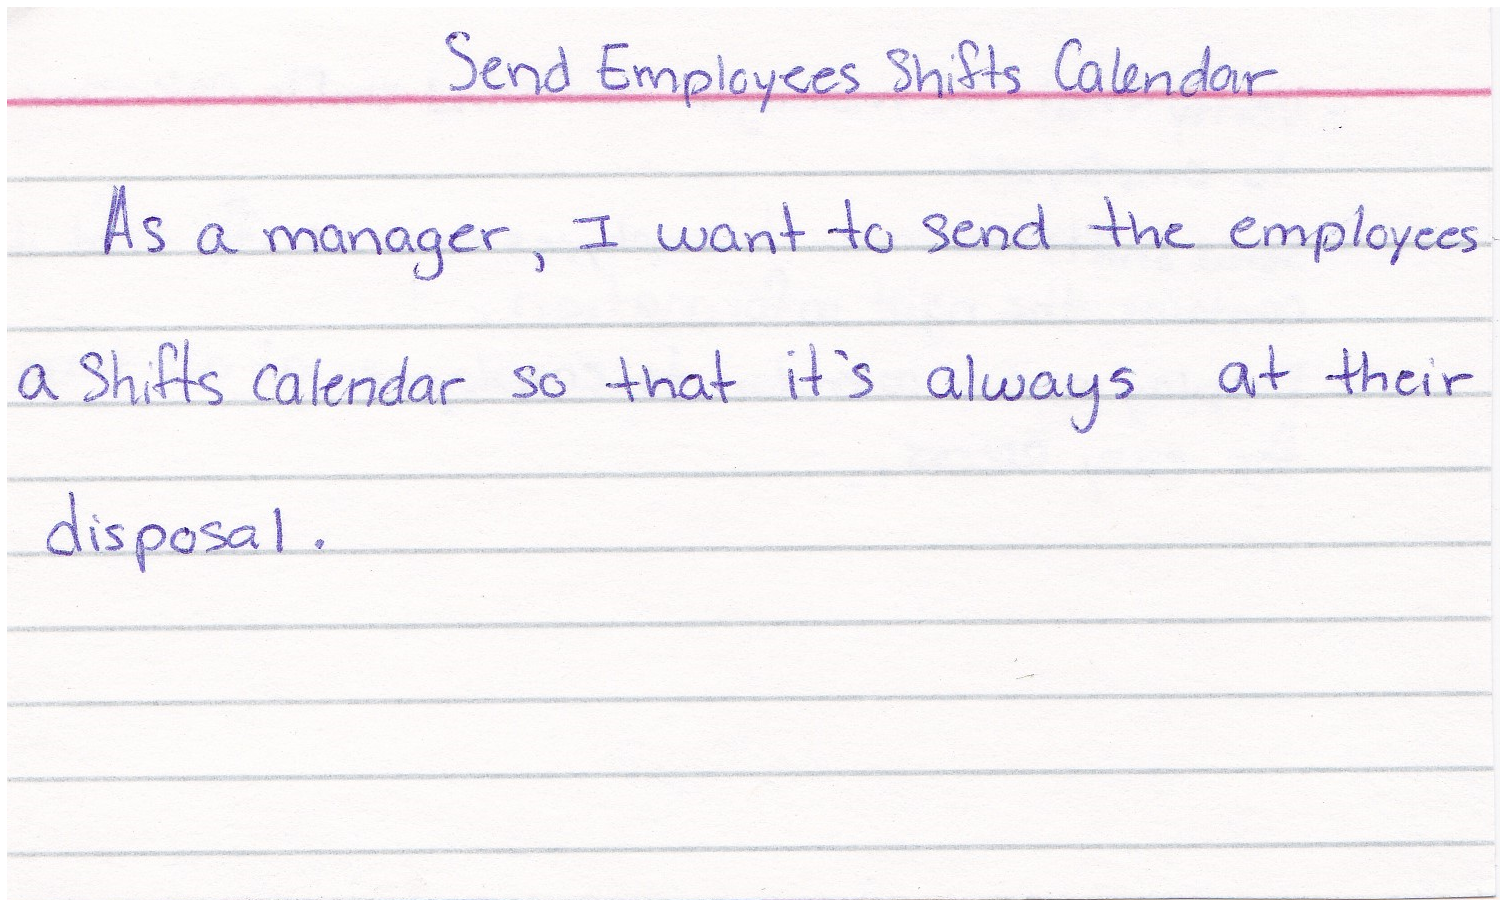 Send Employees Shifts Calendar
As a manager, I want to send the employees
a Shifts calendar so that it's always at their
disposal.